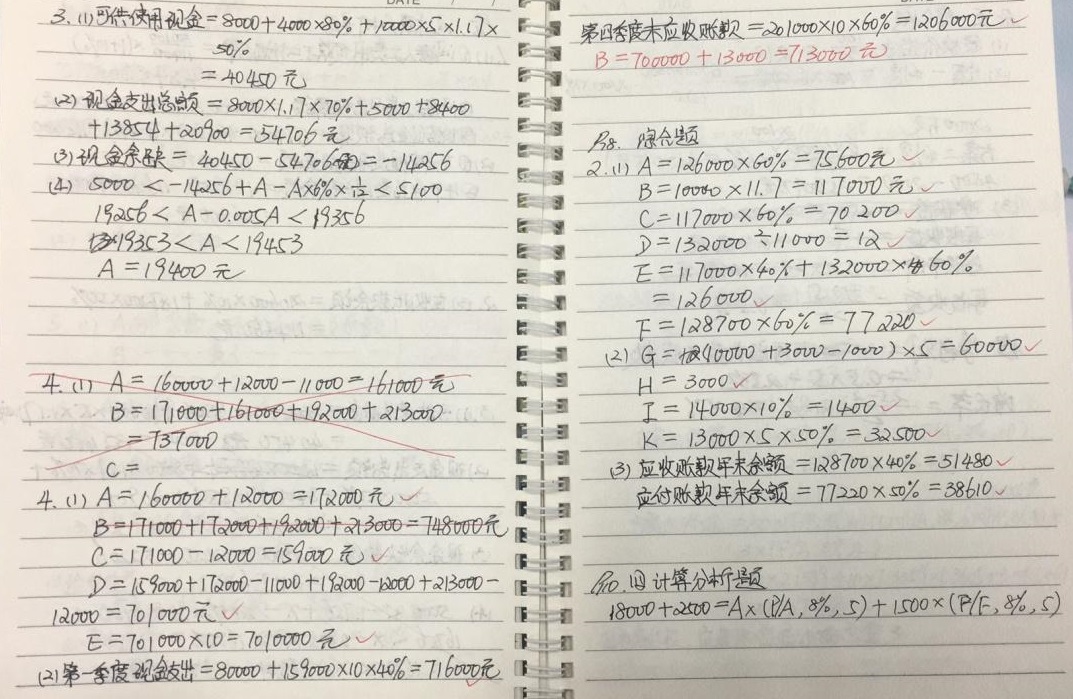 3.(1)可供使用现金=8000+4000×80%+10000×5×1.17×
50%
=40450元
(2)现金支出总额=8000×1.17×70%+5000+8400
+13854+20900=54706元
(3)现金余缺=40450-54706=-14256
(4) 5000<-14256+A-A×6%×1/12<5100
19256<A-0.005A<19356
19353<A<19453
A=19400元
4.(1) A=160000+12000-11000=161000元
B=171000+161000+192000+213000
=737000
C=
4.(1) A=160000+12000=172000元
B=171000+172000+192000+213000=748000元
C=171000-12000=159000元
D=159000+172000-11000+192000-12000+213000-
12000=701000元
E=701000×10=7010000元
(2)第一季度现金支出=80000+159000×10×40%=716000元
第四季度末应收账款=201000×10×60%=1206000元
B=700000+13000=713000元
P8. 综合题
2.(1) A=126000×60%=75600元
B=10000×11.7=117000元
C=117000×60%=70200
D=132000÷11000=12
E=117000×40%+132000×60%
=126000
F=128700×60%=77220
(2) G=(10000+3000-1000)×5=60000
H=3000
I=14000×10%=1400
K=13000×5×50%=32500
(3) 应收账款年末余额=128700×40%=51480
应付账款年末余额=77220×50%=38610
P10. 四 计算分析题
18000+2500=A×(P/A,8%,5)+1500×(P/F,8%,5)